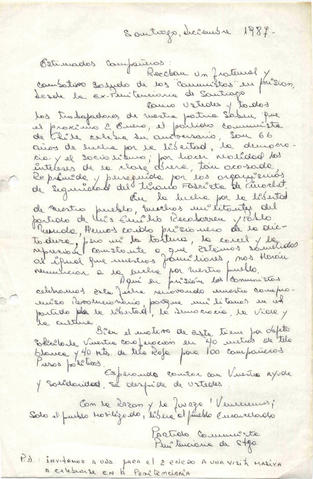 Santiago, diciembre 1987.-
Estimados Compañeros:
Reciban un fraternal y
combativo saludo de los Comunistas en prisión,
desde la ex-Penitenciaria de Santiago
Como ustedes y todos
los trabajadores de nuestra patria saben, que
el proximo 2 Enero, el partido comunista
de Chile celebra su aniversario. Son 66
años de lucha por la libertad, la democra-
cia y el socialismo; por hacer realidad los
intereses de la clase obrera, tan acosada,
Reprimida y perseguida por los organismos
de seguridad del tirano Fascista de Pinochet
En la lucha por la libertad
de nuestro pueblo, muchos militantes del
partido de Luis Emilio Recabarren y Pablo
Neruda, Hemos caido prisioneros de la dic-
tadura, pero ni la tortura, la carcel y la
represión constante a que estamos sometidos
al igual que nuestros familiares, nos Harán
renunciar a la lucha por nuestro pueblo.
Aquí en prisión los comunistas
celebramos este Julio renovando nuestro compro-
miso Revolucionario, porque militamos en el
partido de la libertad, la democracia, la vida y
la cultura.
Bien el motivo de esta tiene por objeto
solicitarle vuestra cooperación en 40 metros de tela
blanca y 40 mts. de tela Roja para 100 compañeros
Presos políticos.
Esperando contar con vuestra ayuda
y solidaridad, se despide de ustedes
Con la Razón y la fuerza! Venceremos!
Solo el pueblo movilizado, libera al pueblo encarcelado
Partido Comunista
Penitenciaria de Stgo.
P.D: invitamos a uds para el 2 enero a una visita masiva
a celebrarse en la Penitenciaria